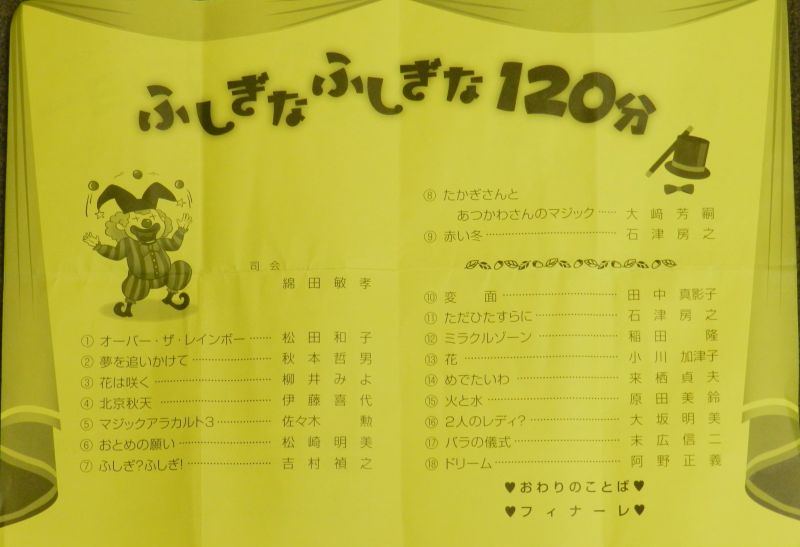 ふしぎなふしぎな120分
司会
綿田敏孝
① オーバー・ザ・レインボー……松田和子
② 夢を追いかけて……秋本哲男
③ 花は咲く……柳井みよ
④ 北京秋天……伊藤喜代
⑤ マジックアラカルト3……佐々木勲
⑥ おとめの願い……松崎明美
⑦ ふしぎ?ふしぎ!……吉村禎之
⑧ たかぎさんと
あつかわさんのマジック……大﨑芳嗣
⑨ 赤い冬……石津房之
⑩ 変面……田中真影子
⑪ ただひたすらに……石津房之
⑫ ミラクルゾーン……稲田隆
⑬ 花……小川加津子
⑭ めでたいわ……来栖貞夫
⑮ 火と水……原田美鈴
⑯ 2人のレディ?……大坂明美
⑰ バラの儀式……末広信二
⑱ ドリーム……阿野正義
♥おわりのことば♥
♥フィナーレ♥